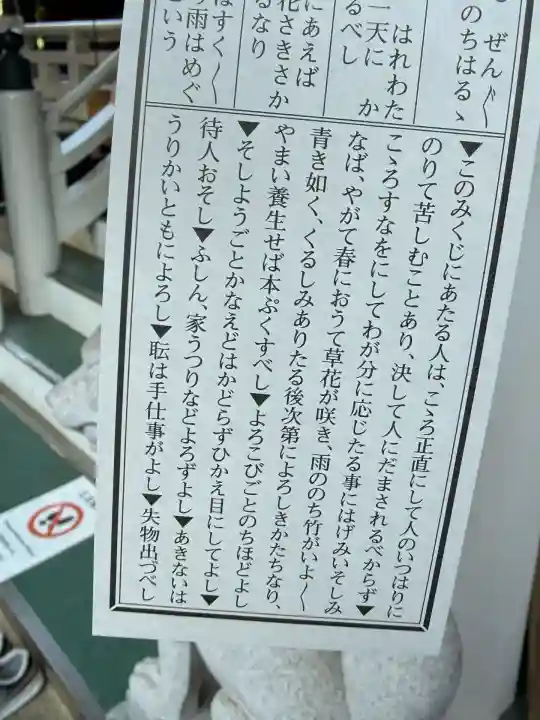 ぜん〴〵
のちはるゝ
はれわた
一天に か
るべし
にあえば
花さきさか
るなり
はすく〳〵
り雨はめぐ
という
▼このみくじにあたる人は、こゝろ正直にして人のいつはりに
のりて苦しむことあり、決して人にだまされるべからず▼
こゝろすなをにしてわが分に応じたる事にはげみいそしみ
なば、やがて春におうて草花が咲き、雨ののち竹がいよ〳〵
青き如く、くるしみありたる後次第によろしきかたちなり、
やまい養生せば本ぷくすべし▼よろこびごとのちほどよし
▼そしようごとかなえどはかどらずひかえ目にしてよし▼
待人おそし▼ふしん、家うつりなどよろずよし▼あきないは
うりかいともによろし▼耺は手仕事がよし▼失物出づべし